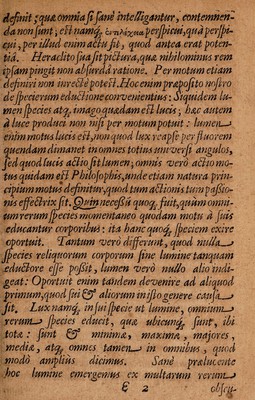 definit: quæ omnia si sanè intelligantur, contemnen-
da non sunt; est namq; ἐντελέχεια perspicui, quà perspi-
cui, per illud enim actu fit, quod antea erat poten-
tiâ. Heraclito sua sit pictura, quæ nihilominus rem
ipsam pingit non absurdâ ratione. Per motum etiam
definiri non inrectè poterit. Hoc enim præposito nostro
de specierum eductione convenientius: Siquidem lu-
men species atq; imago quædam est lucis; hæc autem
à luce produci non nisi per motum potuit: lumen
enim motus lucis est, non quod lux reapse per fluorem
quendam dimanet in omnes totius universi angulos,
sed quod lucis actio sit lumen; omnis verò actio mo-
tus quidam est Philosophis, unde etiam natura prin-
cipium motus definitur, quod tum actionis tum passio-
nis effectrix sit. Quin necessù quoq; fuit, quum omni-
um rerum species momentaneo quodam motu à suis
educantur corporibus: ita hanc quoq; speciem exire
oportuit. Tantum verò differunt, quod nulla
species reliquorum corporum sine lumine tanquam
eductore esse possit, lumen verò nullo alio indi-
geat: Oportuit enim tandem devenire ad aliquod
primum, quod sui & aliorum in isto genere causa
sit. Lux namq; in sui specie ut lumine, omnium
rerum species educit, quæ ubicunq; sunt, ibi
totæ: sunt & minimæ, maximæ, majores,
mediæ, atq; omnes tamen in omnibus, quod
modò amplius dicimus. Sanè prælucente
hoc lumine emergenius ex multarum rerum
& 2 obscu-